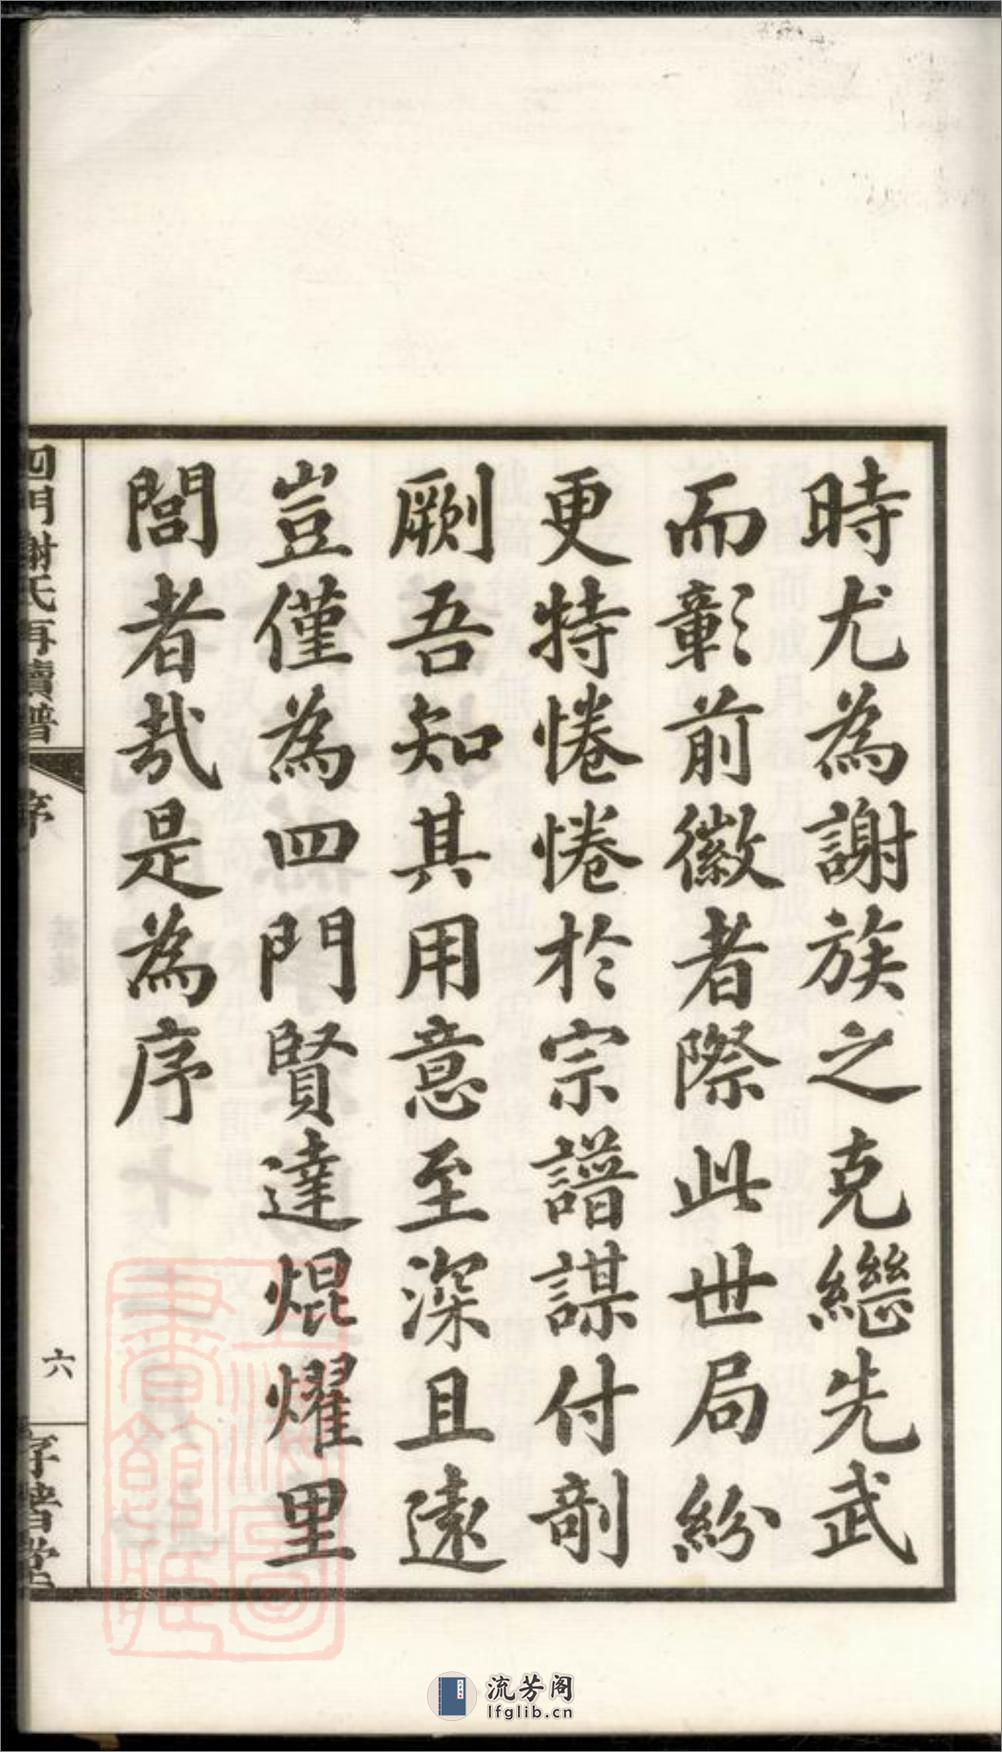 時尤為謝族之克繼先武
而彰前徽者際此世局紛
更特惓惓於宗譜謀付剞
劂吾知其用意至深且遠
豈僅為四門賢達焜燿里
閭者哉是為序
四門謝氏再續譜
序
六
流芳阁
lfglib.cn